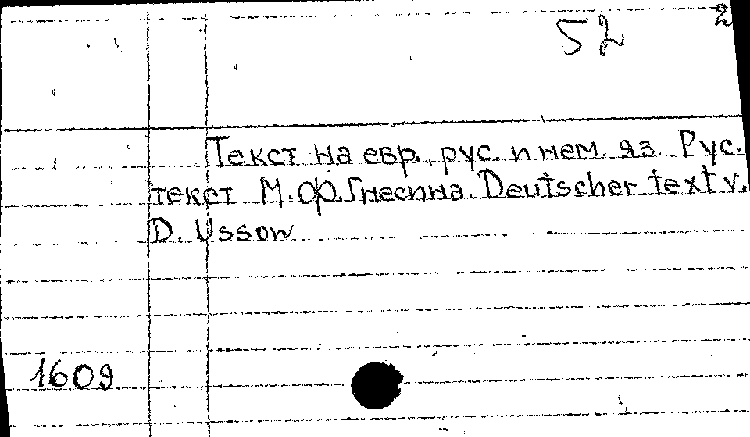 52 2
Текст на евр. рус. и нем. яз. Рус.
текст М.Ф.Гнесина. Deutscher text v.
D. Usson
1609